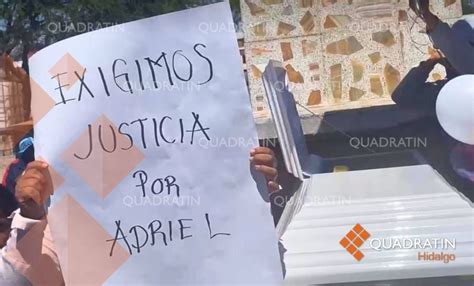 EXIGIMOS
JUSTICIA
POR
ADRIEL
QUADRATIN
QUADRATIN
QUADRATIN
QUADRATIN
QUADRATIN
QUADRATIN
QUADRATIN
QUADRATIN
QUADRATIN
Hidalgo